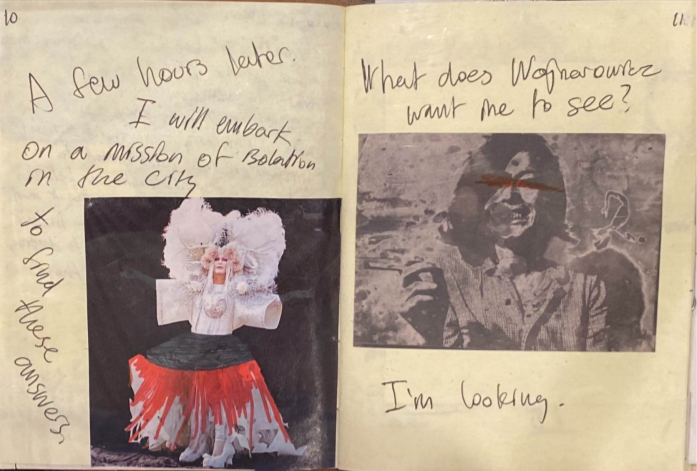 10
A few hours later.
I will embark
on a mission of isolation
in the city
to find these
answers.
11
What does Wojnarowicz
want me to see?
I'm looking.